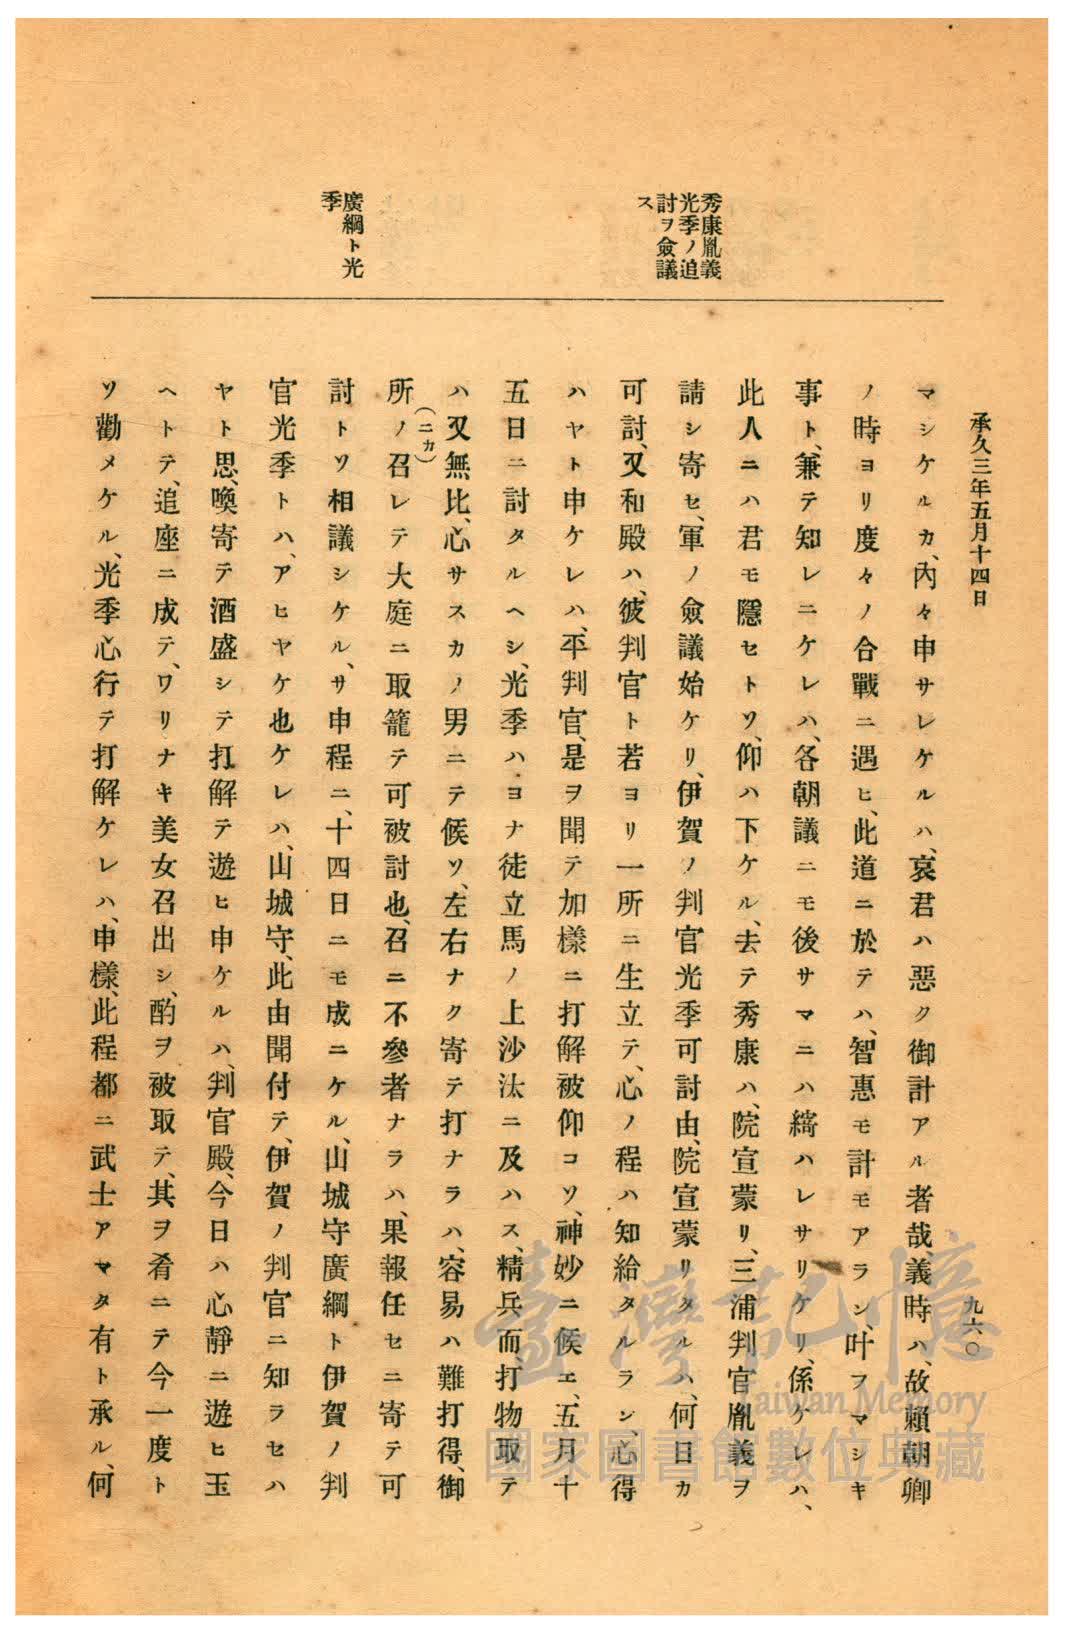 承久三年五月十四日
九六〇
秀康胤義
光季ノ追
討ヲ僉議
ス
廣綱ト光
季
マシケルカ、內々申サレケルハ、哀君ハ惡ク御計アル者哉義時ハ、故賴朝卿
ノ時ヨリ度々ノ合戰ニ遇ヒ、此道ニ於テハ、智惠モ計モアラシ、叶フマシキ
事ト、兼テ知レニケレハ、各朝議ニモ後サマニハ縮ハレサリケリ、係ケレハ、
此人ニハ君モ隱セトソ、仰ハ下ケル、去テ秀康ハ、院宣蒙リ、三浦判官胤義ヲ
請シ寄セ、軍ノ僉議始ケリ、伊賀ノ判官光季可討由、院宣蒙リタルハ、何日カ
可討、又和殿ハ、彼判官ト若ヨリ一所ニ生立テ、心ノ程ハ知給タルラン、心得
ハヤト申ケレハ、平判官、是ヲ聞テ加樣ニ打解被仰コソ、神妙ニ候エ、五月十
五日ニ討タルヘシ、光季ハヨナ徒立馬ノ上沙汰ニ及ハス、精兵而、打物取テ
ハ又無比、心サスカノ男ニテ候ソ、左右ナク寄テ打ナラハ、容易ハ難打得、御
所ノ(ニカ)召レテ大庭ニ取籠テ可被討也、召ニ不參者ナラハ、果報任セニ寄テ可
討トソ相議シケル、サ申程ニ、十四日ニモ成ニケル、山城守廣綱ト伊賀ノ判
官光季トハ、アヒヤケ也ケレハ、山城守、此由聞付テ、伊賀ノ判官ニ知ラセハ
ヤト思、喚寄テ酒盛シテ打解テ遊ヒ申ケルハ、判官殿、今日ハ心靜ニ遊ヒ玉
ヘトテ、追座ニ成テ、ワリナキ美女召出シ、酌ヲ被取テ、其ヲ肴ニテ今一度ト
ソ勸メケル、光季心行テ打解ケレハ、申樣、此程都ニ武士アマタ有ト承ル、何
臺灣記憶
Taiwan Memory
國家圖書館數位典藏